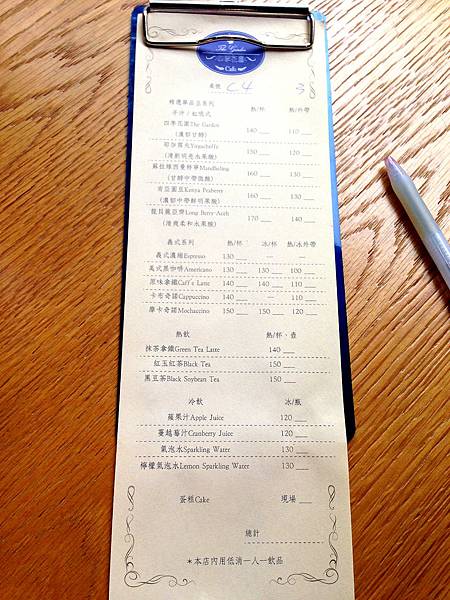 The Garden
四季花園
Cafe
桌號 C4 3
精選單品豆系列 熱/杯 熱/外帶
手沖/虹吸式
四季花園The Garden 140 110
(濃郁甘醇)
耶加雪夫Yirgacheffe 150 120
(清新明亮水果酸)
蘇拉維西曼特寧Mandheling 160 130
(甘醇中帶微酸)
肯亞圓豆Kenya Peaberry 160 130
(濃郁中帶鮮明果酸)
龍貝麗亞齊Long Berry-Aceh 170 140
(滑爽柔和水果酸)
義式系列 熱/杯 冰/杯 熱/冰外帶
義式濃縮Espresso 130 — —
美式黑咖啡Americano 130 130 100
原味拿鐵Caff'e Latte 140 140 110
卡布奇諾Cappuccino 140 — 110
摩卡奇諾Mochaccino 150 150 120
熱飲 熱/杯、壺
抹茶拿鐵Green Tea Latte 140
紅玉紅茶Black Tea 150
黑豆茶Black Soybean Tea 150
冷飲 冰/瓶
蘋果汁Apple Juice 120
蔓越莓汁Cranberry Juice 120
氣泡水Sparkling Water 130
檸檬氣泡水Lemon Sparkling Water 130
蛋糕Cake 現場
總計
*本店內用低消一人一飲品